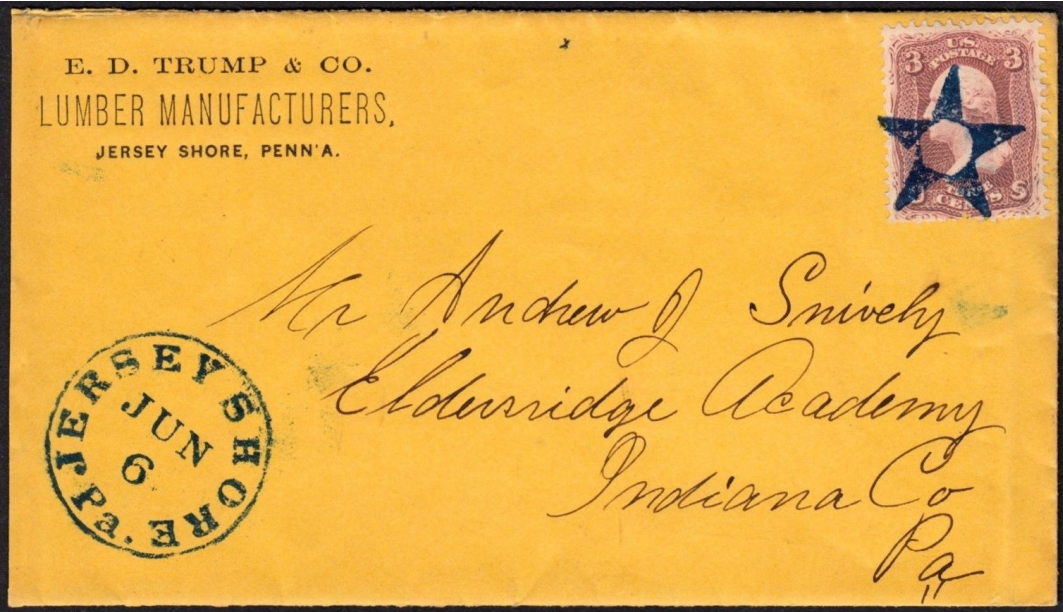 E. D. TRUMP & CO.
LUMBER MANUFACTURERS,
JERSEY SHORE, PENN'A.
3 U.S. 3
POSTAGE
THREE
CENTS
Mr Andrew J Snively
Eldersridge Academy
Indiana Co
Pa
JERSEY SHORE. Pa.
JUN
6